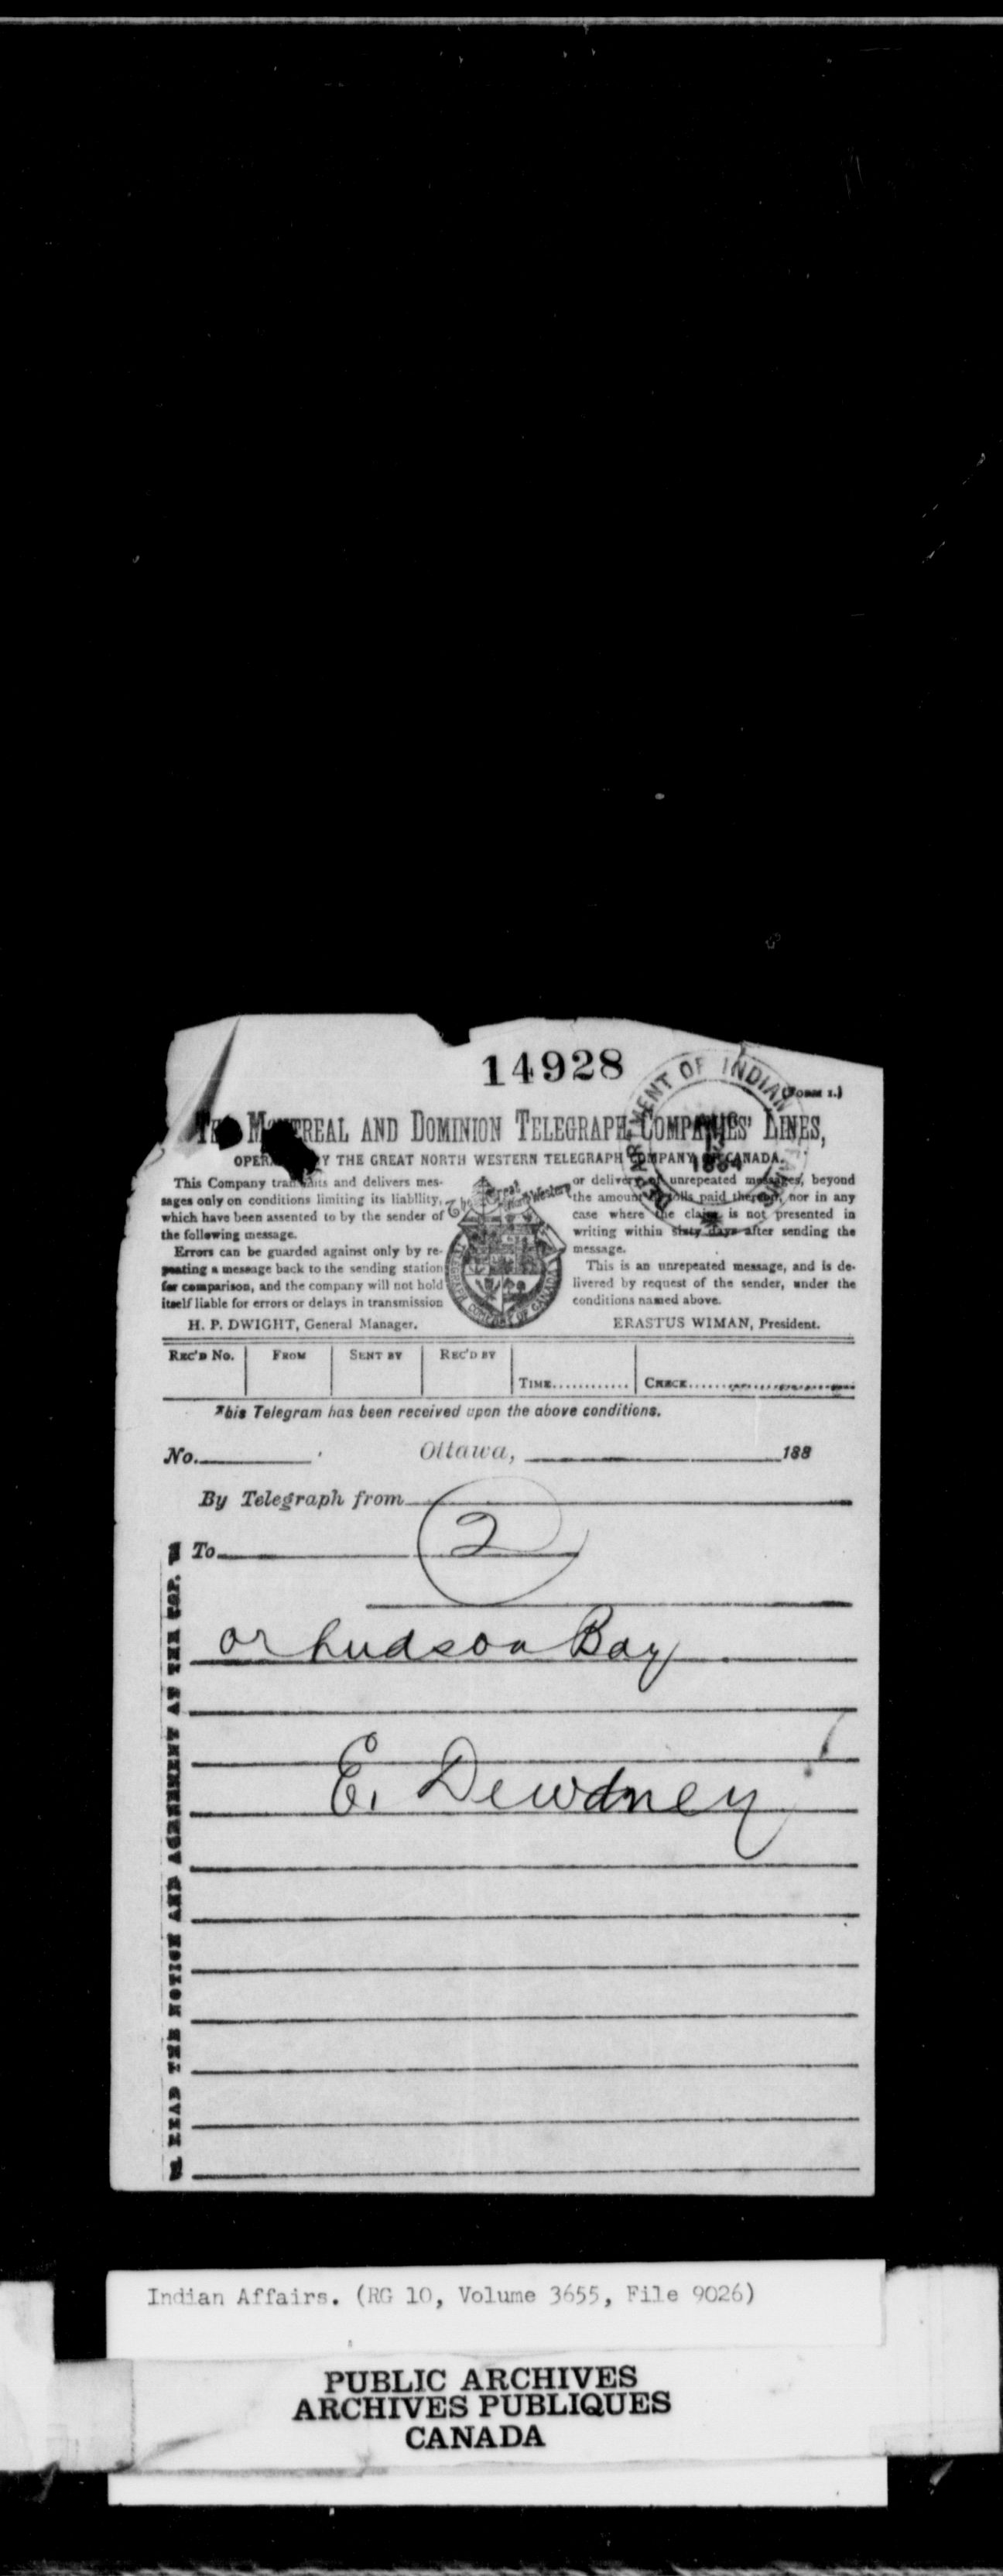 14928
DEPARTMENT OF INDIAN AFFAIRS
1884
(FORM 1.)
THE MONTREAL AND DOMINION TELEGRAPH COMPANIES' LINES,
OPERATED BY THE GREAT NORTH WESTERN TELEGRAPH COMPANY OF CANADA.
This Company transmits and delivers mes-
sages only on conditions limiting its liability,
which have been assented to by the sender of
the following message.
Errors can be guarded against only by re-
peating a message back to the sending station
for comparison, and the company will not hold
itself liable for errors or delays in transmission
H. P. DWIGHT, General Manager.
The Great North Western
TELEGRAPH COMPANY OF CANADA
or delivery of unrepeated messages, beyond
the amount of tolls paid thereon, nor in any
case where the claim is not presented in
writing within sixty days after sending the
message.
This is an unrepeated message, and is de-
livered by request of the sender, under the
conditions named above.
ERASTUS WIMAN, President.
REC'D No. FROM SENT BY REC'D BY
TIME............ CHECK..............................
This Telegram has been received upon the above conditions.
No. Ottawa, 188
By Telegraph from
To 2
or hudson Bay
E. Dewdney
READ THE NOTICE AND AGREEMENT AT THE TOP.
Indian Affairs. (RG 10, Volume 3655, File 9026)
PUBLIC ARCHIVES
ARCHIVES PUBLIQUES
CANADA